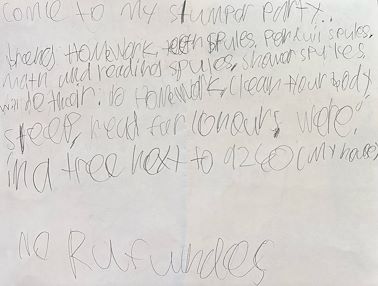 Come to my slumpar party..
bring: Homework, teeth spules, Penkuil spules,
math and reading spules, shower spules.
will do thair: do Homework, clean your body,
sleep, read for 10 hours, were:
in a tree next to 9260 (my house)
No Rufundes